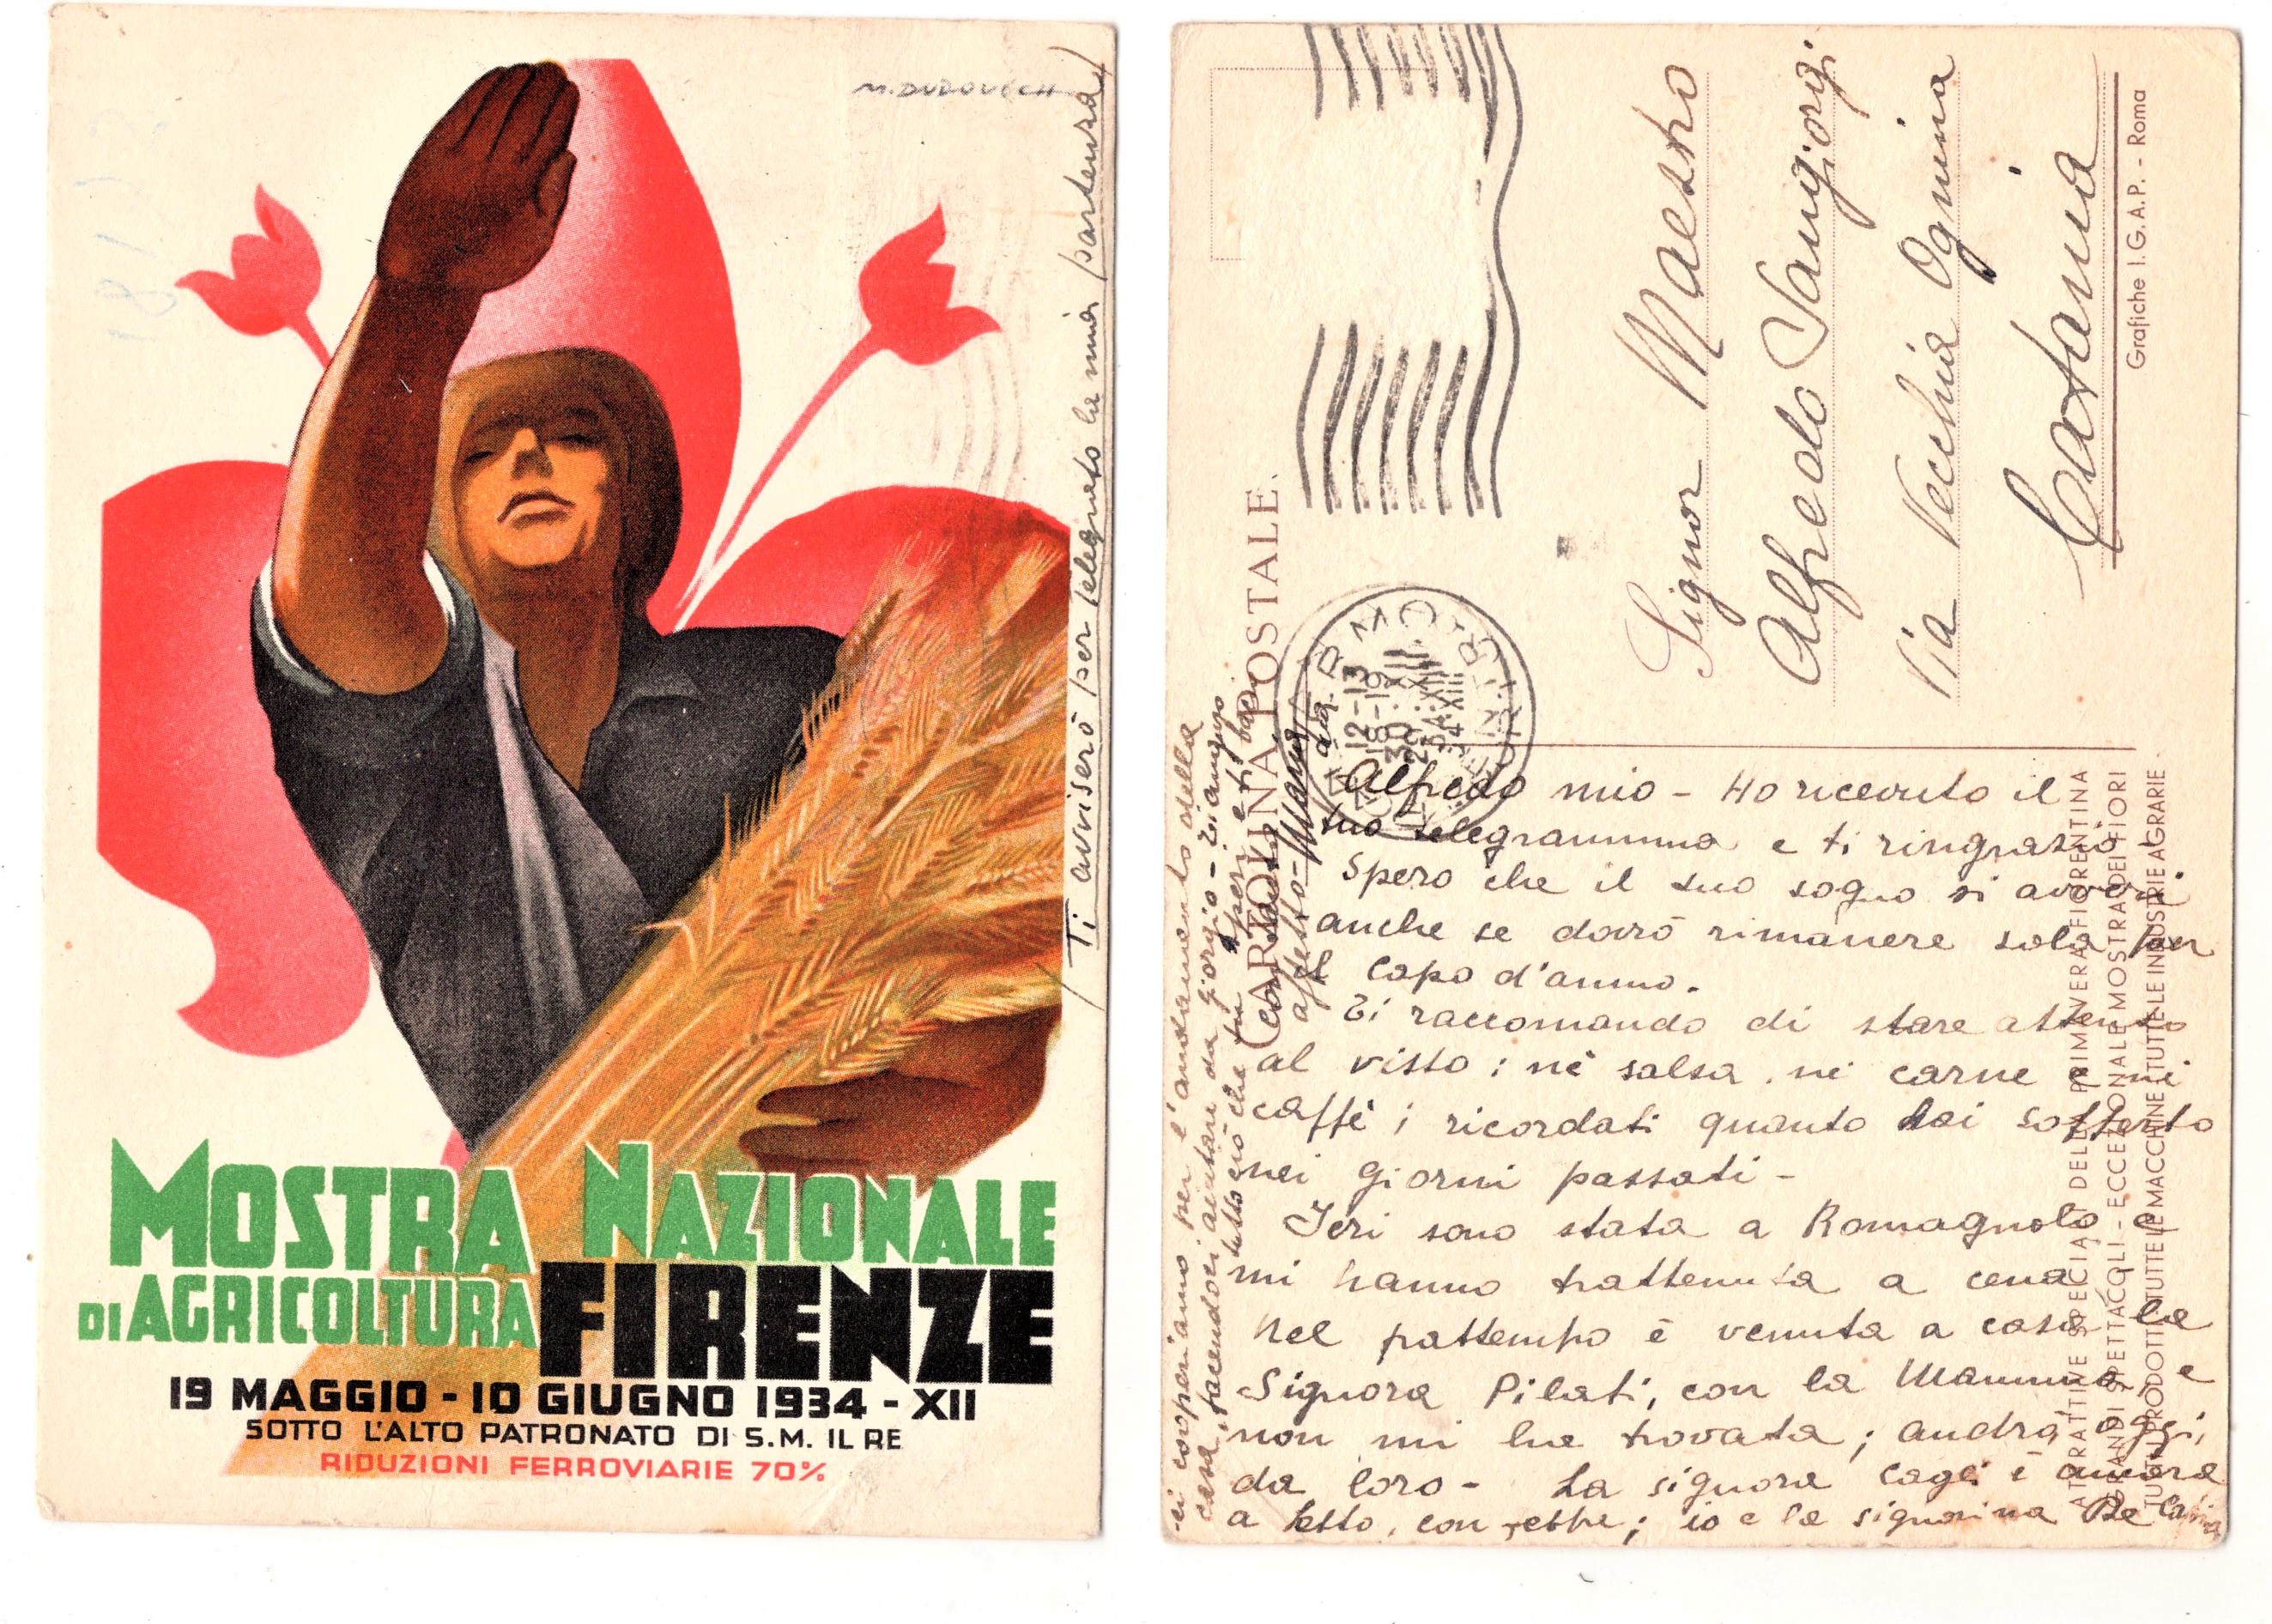 M. DUDOVICH
MOSTRA NAZIONALE
DI AGRICOLTURA FIRENZE
19 MAGGIO - 10 GIUGNO 1934 - XII
SOTTO L'ALTO PATRONATO DI S.M. IL RE
RIDUZIONI FERROVIARIE 70%
Ti avviserò per telegrafo la mia partenza
CARTOLINA POSTALE
12-13
18-19
30.XII
29.XII
34.XIII
34 XIII
Signor Maestro
Alfredo Sangiorgi
Via Vecchia Ognina
Catania
Grafiche I.G.A.P. - Roma
ATTRATTIVE SPECIALI DELLA PRIMAVERA FIORENTINA
GRANDI SPETTACOLI - ECCEZIONALE MOSTRA DEI FIORI
TUTTI I PRODOTTI - TUTTE LE MACCHINE - TUTTE LE INDUSTRIE AGRARIE
Alfredo mio - Ho ricevuto il
tuo telegramma e ti ringrazio
Spero che il tuo sogno si avveri
anche se dovrò rimanere sola per
il capo d'anno.
Ti raccomando di stare attento
al vitto: nè salsa, nè carne e nè
caffè; ricordati quanto hai sofferto
nei giorni passati -
Ieri sono stata a Romagnolo e
mi hanno trattenuta a cena
Nel frattempo è venuta a casa la
Signora Pilati, con la Mamma e
non mi ha trovata; andrò oggi,
da loro - La signora Cagli è ancora
a letto, con febbre; io e la signorina De
ci cooperiamo per l'andamento della
casa, facendoci aiutare da Giorgio - Ti auguro
tutto ciò che tu speri e ti
con tanto
affetto -